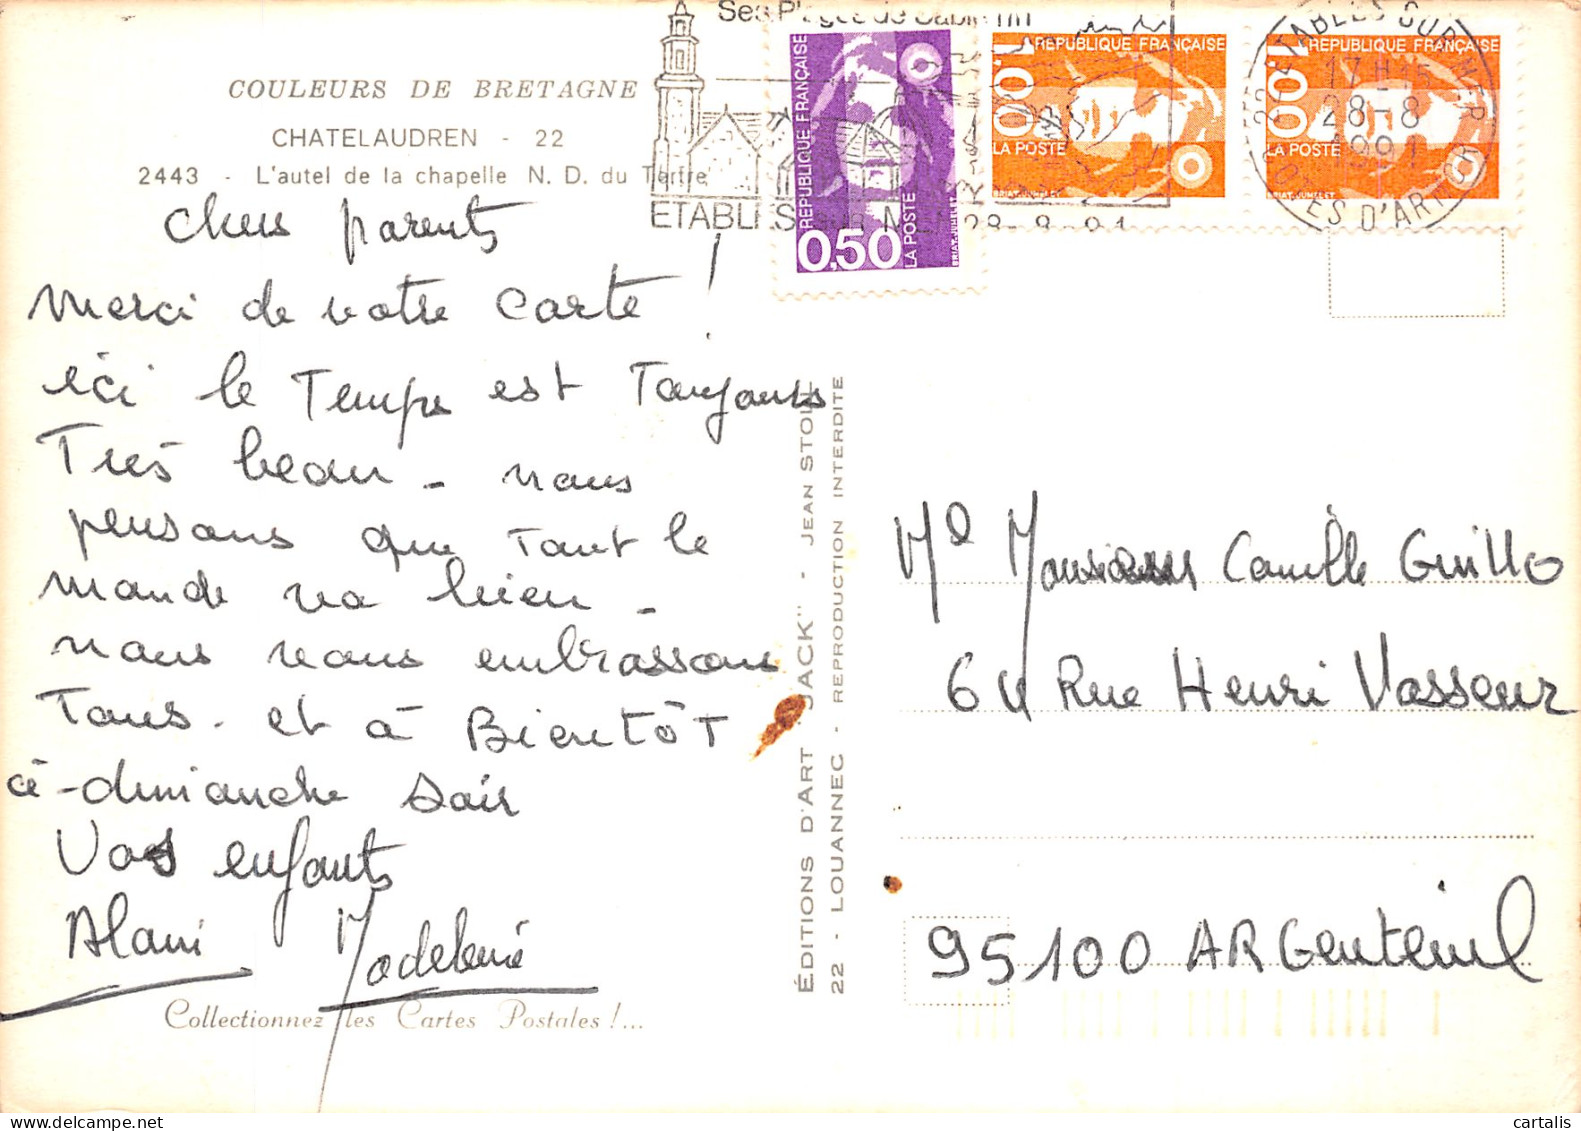 COULEURS DE BRETAGNE
CHATELAUDREN - 22
2443 - L'autel de la chapelle N. D. du Tertre
Chers parents
Merci de votre carte !
ici le Temps est Toujours
Très beau - nous
pensons que Tout le
monde va bien -
nous vous embrassons
Tous - et à Bientôt
à - dimanche soir
Vos enfants
Alain Madeleine
Collectionnez les Cartes Postales !...
ÉDITIONS D'ART "JACK" - JEAN STOLL
22 - LOUANNEC - REPRODUCTION INTERDITE
Ses Plages de Sable fin
ETABLES SUR MER 28-8-91
RÉPUBLIQUE FRANÇAISE
0,50
LA POSTE
BRIAT-JUMELET
RÉPUBLIQUE FRANÇAISE
1,00
LA POSTE
BRIAT-JUMELET
RÉPUBLIQUE FRANÇAISE
1,00
LA POSTE
BRIAT-JUMELET
22 ETABLES SUR MER
17H15
28-8
1991
COTES D'ARMOR
Monsieur Camille Guillo
64 Rue Henri Vasseur
95100 ARGenteuil
cartalis